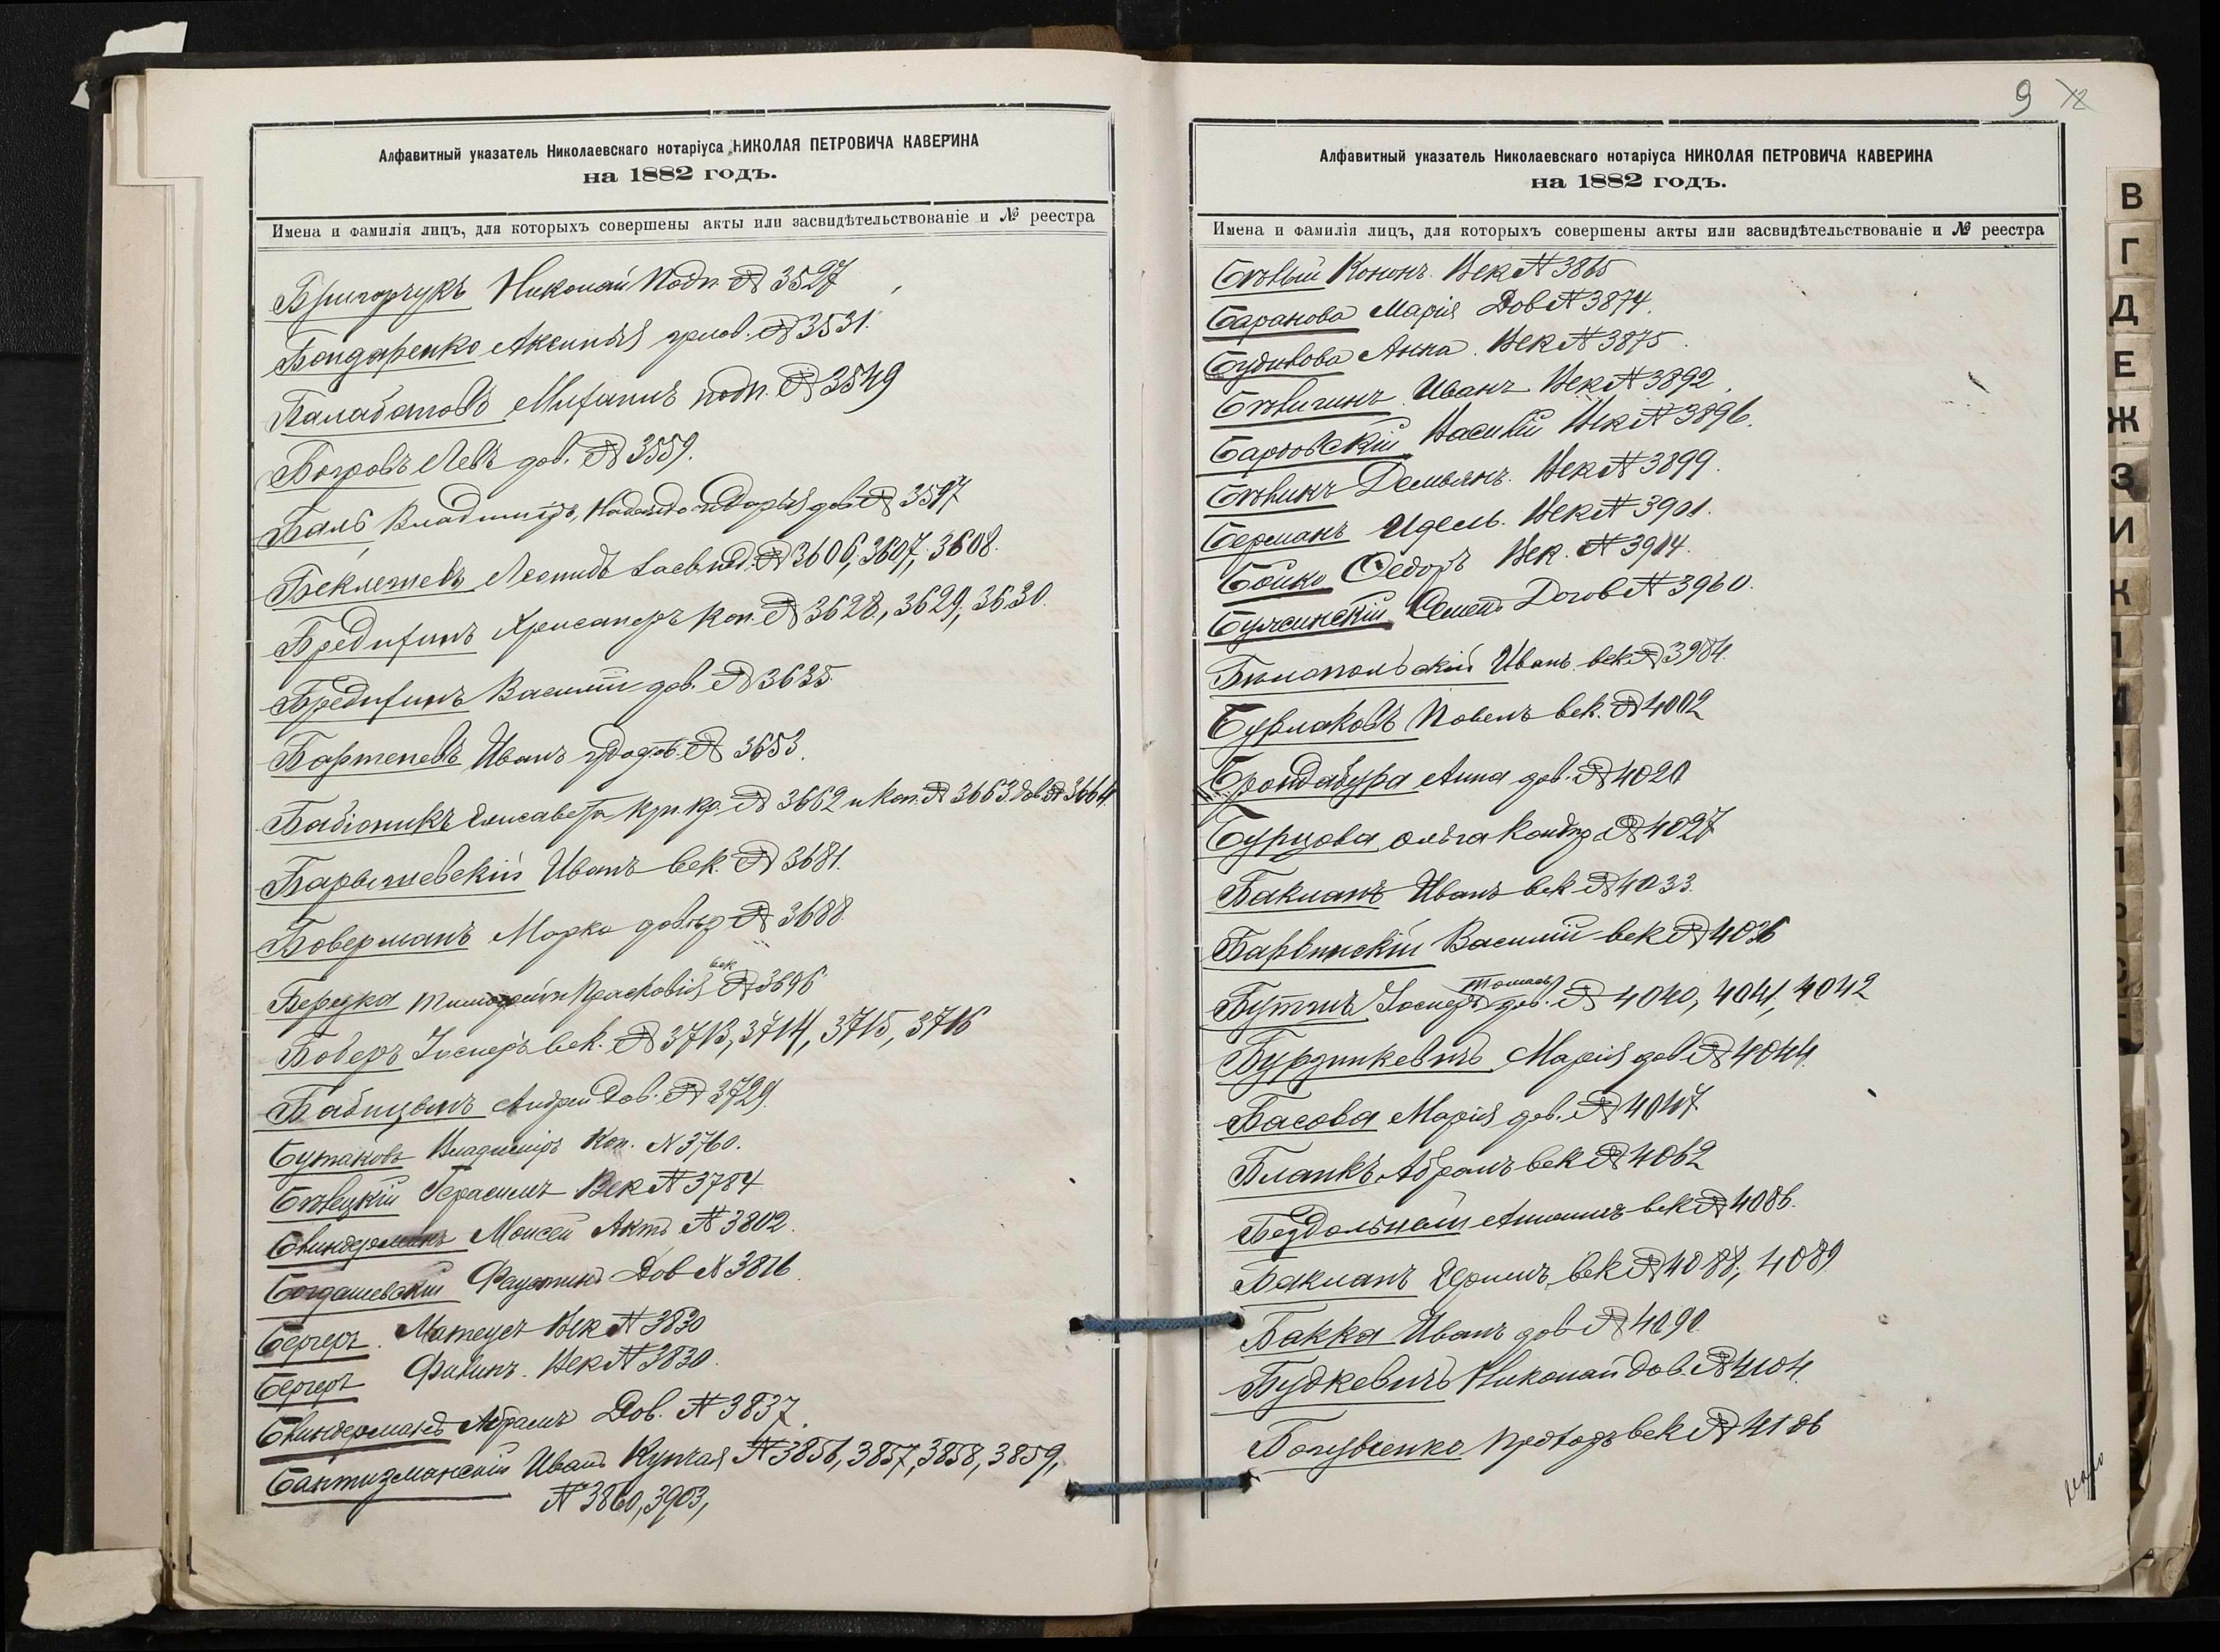 Алфавитный указатель Николаевскаго нотаріуса НИКОЛАЯ ПЕТРОВИЧА КАВЕРИНА
на 1882 годъ.
Имена и фамилія лицъ, для которыхъ совершены акты или засвидѣтельствованіе и № реестра
Николай подп. № 3527
Бондаренко Аксинья № 3531.
Балабановъ подп. № 3549
Богровъ Левъ дов. № 3559.
Баль Владиміръ, Надежда и Дарья дов № 3597
Беклешевъ Леонидъ № 3606, 3607, 3608.
Бредихинъ Хрисанфъ коп. № 3628, 3629, 3630.
Бредихинъ Василій дов. № 3635
Бартеневъ Иванъ № 3653.
Елисавета № 3662 и коп. № 3663. дов № 3664
Барышевскій Иванъ век. № 3681.
Боверманъ Марко № 3688
Берецка Тимофей и Прасковія век № 3696
Боберъ Іосифъ век. № 3713, 3714, 3715, 3716
Бабицынъ Андрей дов. № 3729.
Бутаковъ Владиміръ Коп. N 3760.
Бѣлецкій Герасимъ Век № 3784
Блиндерманъ Моисей Актъ № 3802.
Богдашевскій Фаустинъ Дов № 3816.
Бергеръ. Матеусъ Век № 3830
Бергеръ Филипъ. Век № 3830.
Блиндерманъ Абрамъ Дов. № 3837.
Бантизманскій Иванъ Купчая № 3856, 3857, 3858, 3859,
№ 3860, 3903,
9 12
Алфавитный указатель Николаевскаго нотаріуса НИКОЛАЯ ПЕТРОВИЧА КАВЕРИНА
на 1882 годъ.
Имена и фамилія лицъ, для которыхъ совершены акты или засвидѣтельствованіе и № реестра
Бѣлый Кононъ. Век № 3865
Баранова Марія Дов № 3874.
Будикова Анна. Век № 3875.
Бѣлигинъ Иванъ Век № 3892.
Василій Век № 3896.
Бѣликъ Демьянъ. Век № 3899.
Берманъ Идель. Век № 3901.
Бойко Федоръ Век. № 3914.
Семенъ Догов № 3960.
Бѣлопольскій Иванъ век № 3984.
Бурлаковъ Павелъ век. № 4002
Брондабура Анна дов. № 4020
Бурцова Ольга № 4027
Бакманъ Иванъ век № 4033.
Барвинскій Василій век № 4036
Томасъ
Іосифъ дов. № 4040, 4041, 4042
Бурдзинкевичъ Марія дов № 4044.
Басова Марія дов. № 4047
Бланкъ Абрамъ век № 4062
Бездольный век № 4086.
Бакманъ век № 4088, 4089
Бакка Иванъ дов № 4090
Будкевичъ Николай дов. № 4104.
век № 4186
В
Г
Д
Е
Ж
З
И
К